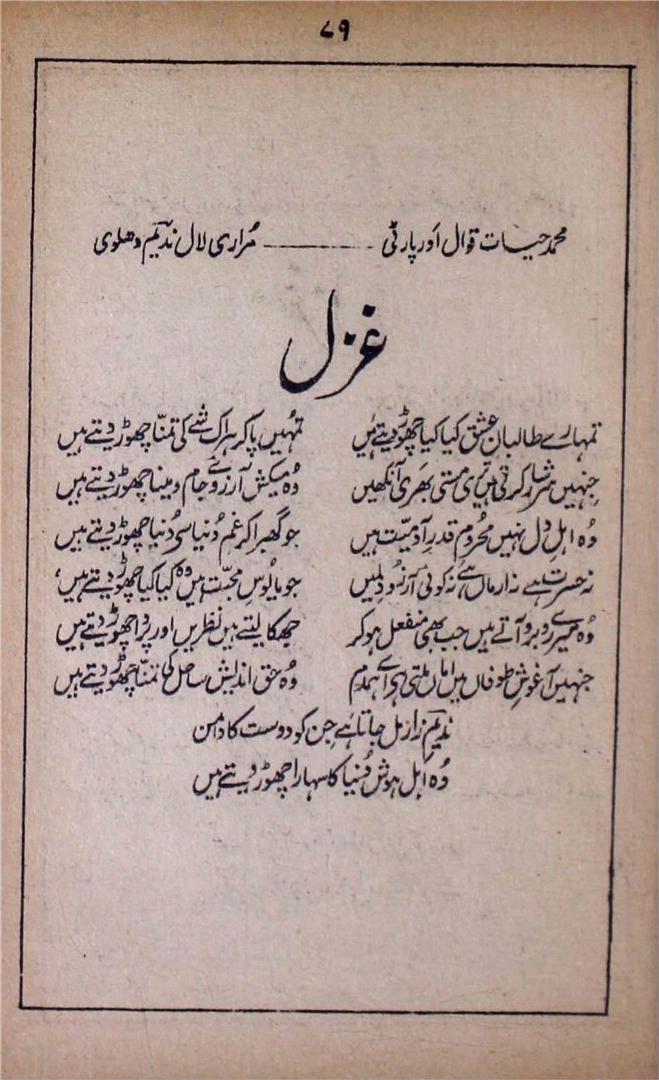 ۷۹
محمد حیات قوال اور پارٹی ـــــــــ مُراری لال ندیم دھلوی
غزل
تمہارے طالبانِ عشق کیا کیا چھوڑ دیتے ہیں تمہیں پا کر ہر اک شے کی تمنّا چھوڑ دیتے ہیں
جنہیں سرشار کرتی ہیں تری مستی بھری آنکھیں وُہ میکش آرزوے جام و مینا چھوڑ دیتے ہیں
وُہ اہلِ دل نہیں محرُوم قدرِ آدمیّت ہیں جو گھبرا کر غمِ دُنیا سی دُنیا چھوڑ دیتے ہیں
نہ حسرت ہے نہ ارماں ہے نہ کوئی آرزُو دل میں جو مایُوسِ محبّت ہیں وُہ کیا کیا چھوڑ دیتے ہیں
وُہ میرے رُوبرو آتے ہیں جب بھی منفعل ہو کر جھکا لیتے ہیں نظریں اور پردا چھوڑ دیتے ہیں
جنہیں آغوشِ طوفاں میں اماں ملتی ہی اے ہمدم وُہ حق اندیش ساحل کی تمنّا چھوڑ دیتے ہیں
ندیمِ زار مل جاتا ہے جن کو دوست کا دامن
وُہ اہلِ ہوش دُنیا کا سہارا چھوڑ دیتے ہیں